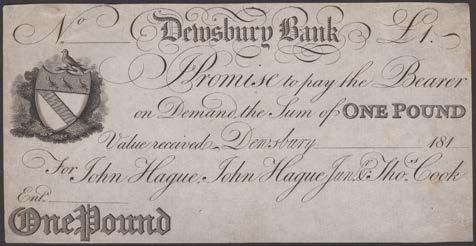 No Dewsbury Bank £1.-
I Promise to pay the Bearer
on Demand, the Sum of ONE POUND
Value received, Dewsbury 181
For John Hague, John Hague Junr. & Thos. Cook
Entd.
One Pound